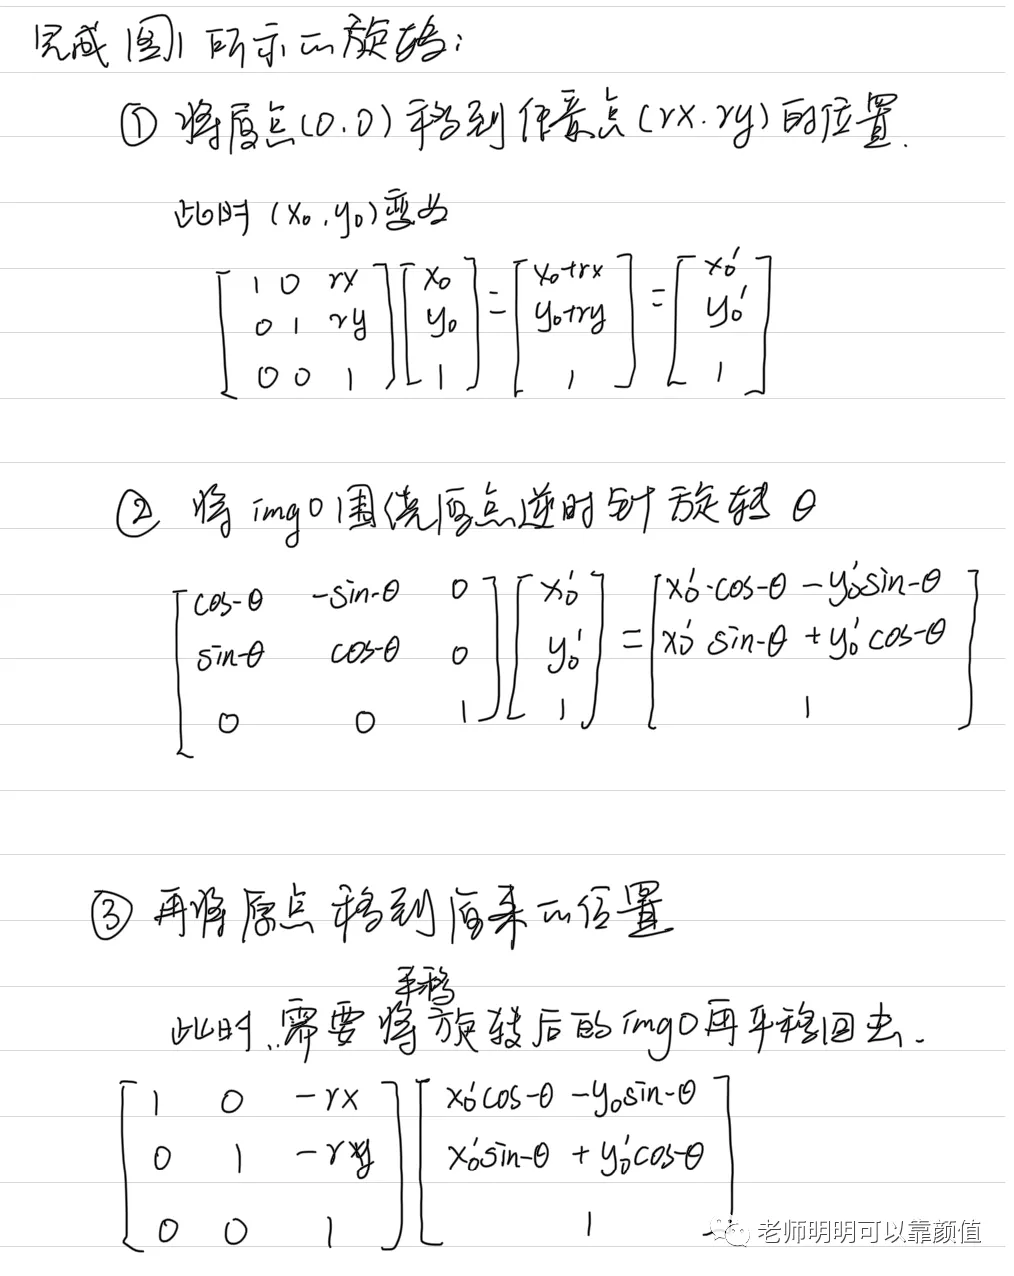 完成图1所示的旋转:
① 将原点(0,0)移到任意点(rx.ry)的位置.
此时(x₀,y₀)变为
[1 0 rx; 0 1 ry; 0 0 1][x₀; y₀; 1]=[x₀+rx; y₀+ry; 1]=[x₀′; y₀′; 1]
② 将img0围绕原点逆时针旋转θ
[cos-θ -sin-θ 0; sin-θ cos-θ 0; 0 0 1][x₀′; y₀′; 1]=[x₀′·cos-θ - y₀′sin-θ; x₀′sin-θ + y₀′cos-θ; 1]
③ 再将原点移到原来的位置
平移
此时,需要将旋转后的img0再平移回去.
[1 0 -rx; 0 1 -ry; 0 0 1][x₀′cos-θ - y₀sin-θ; x₀′sin-θ + y₀′cos-θ; 1]
老师明明可以靠颜值